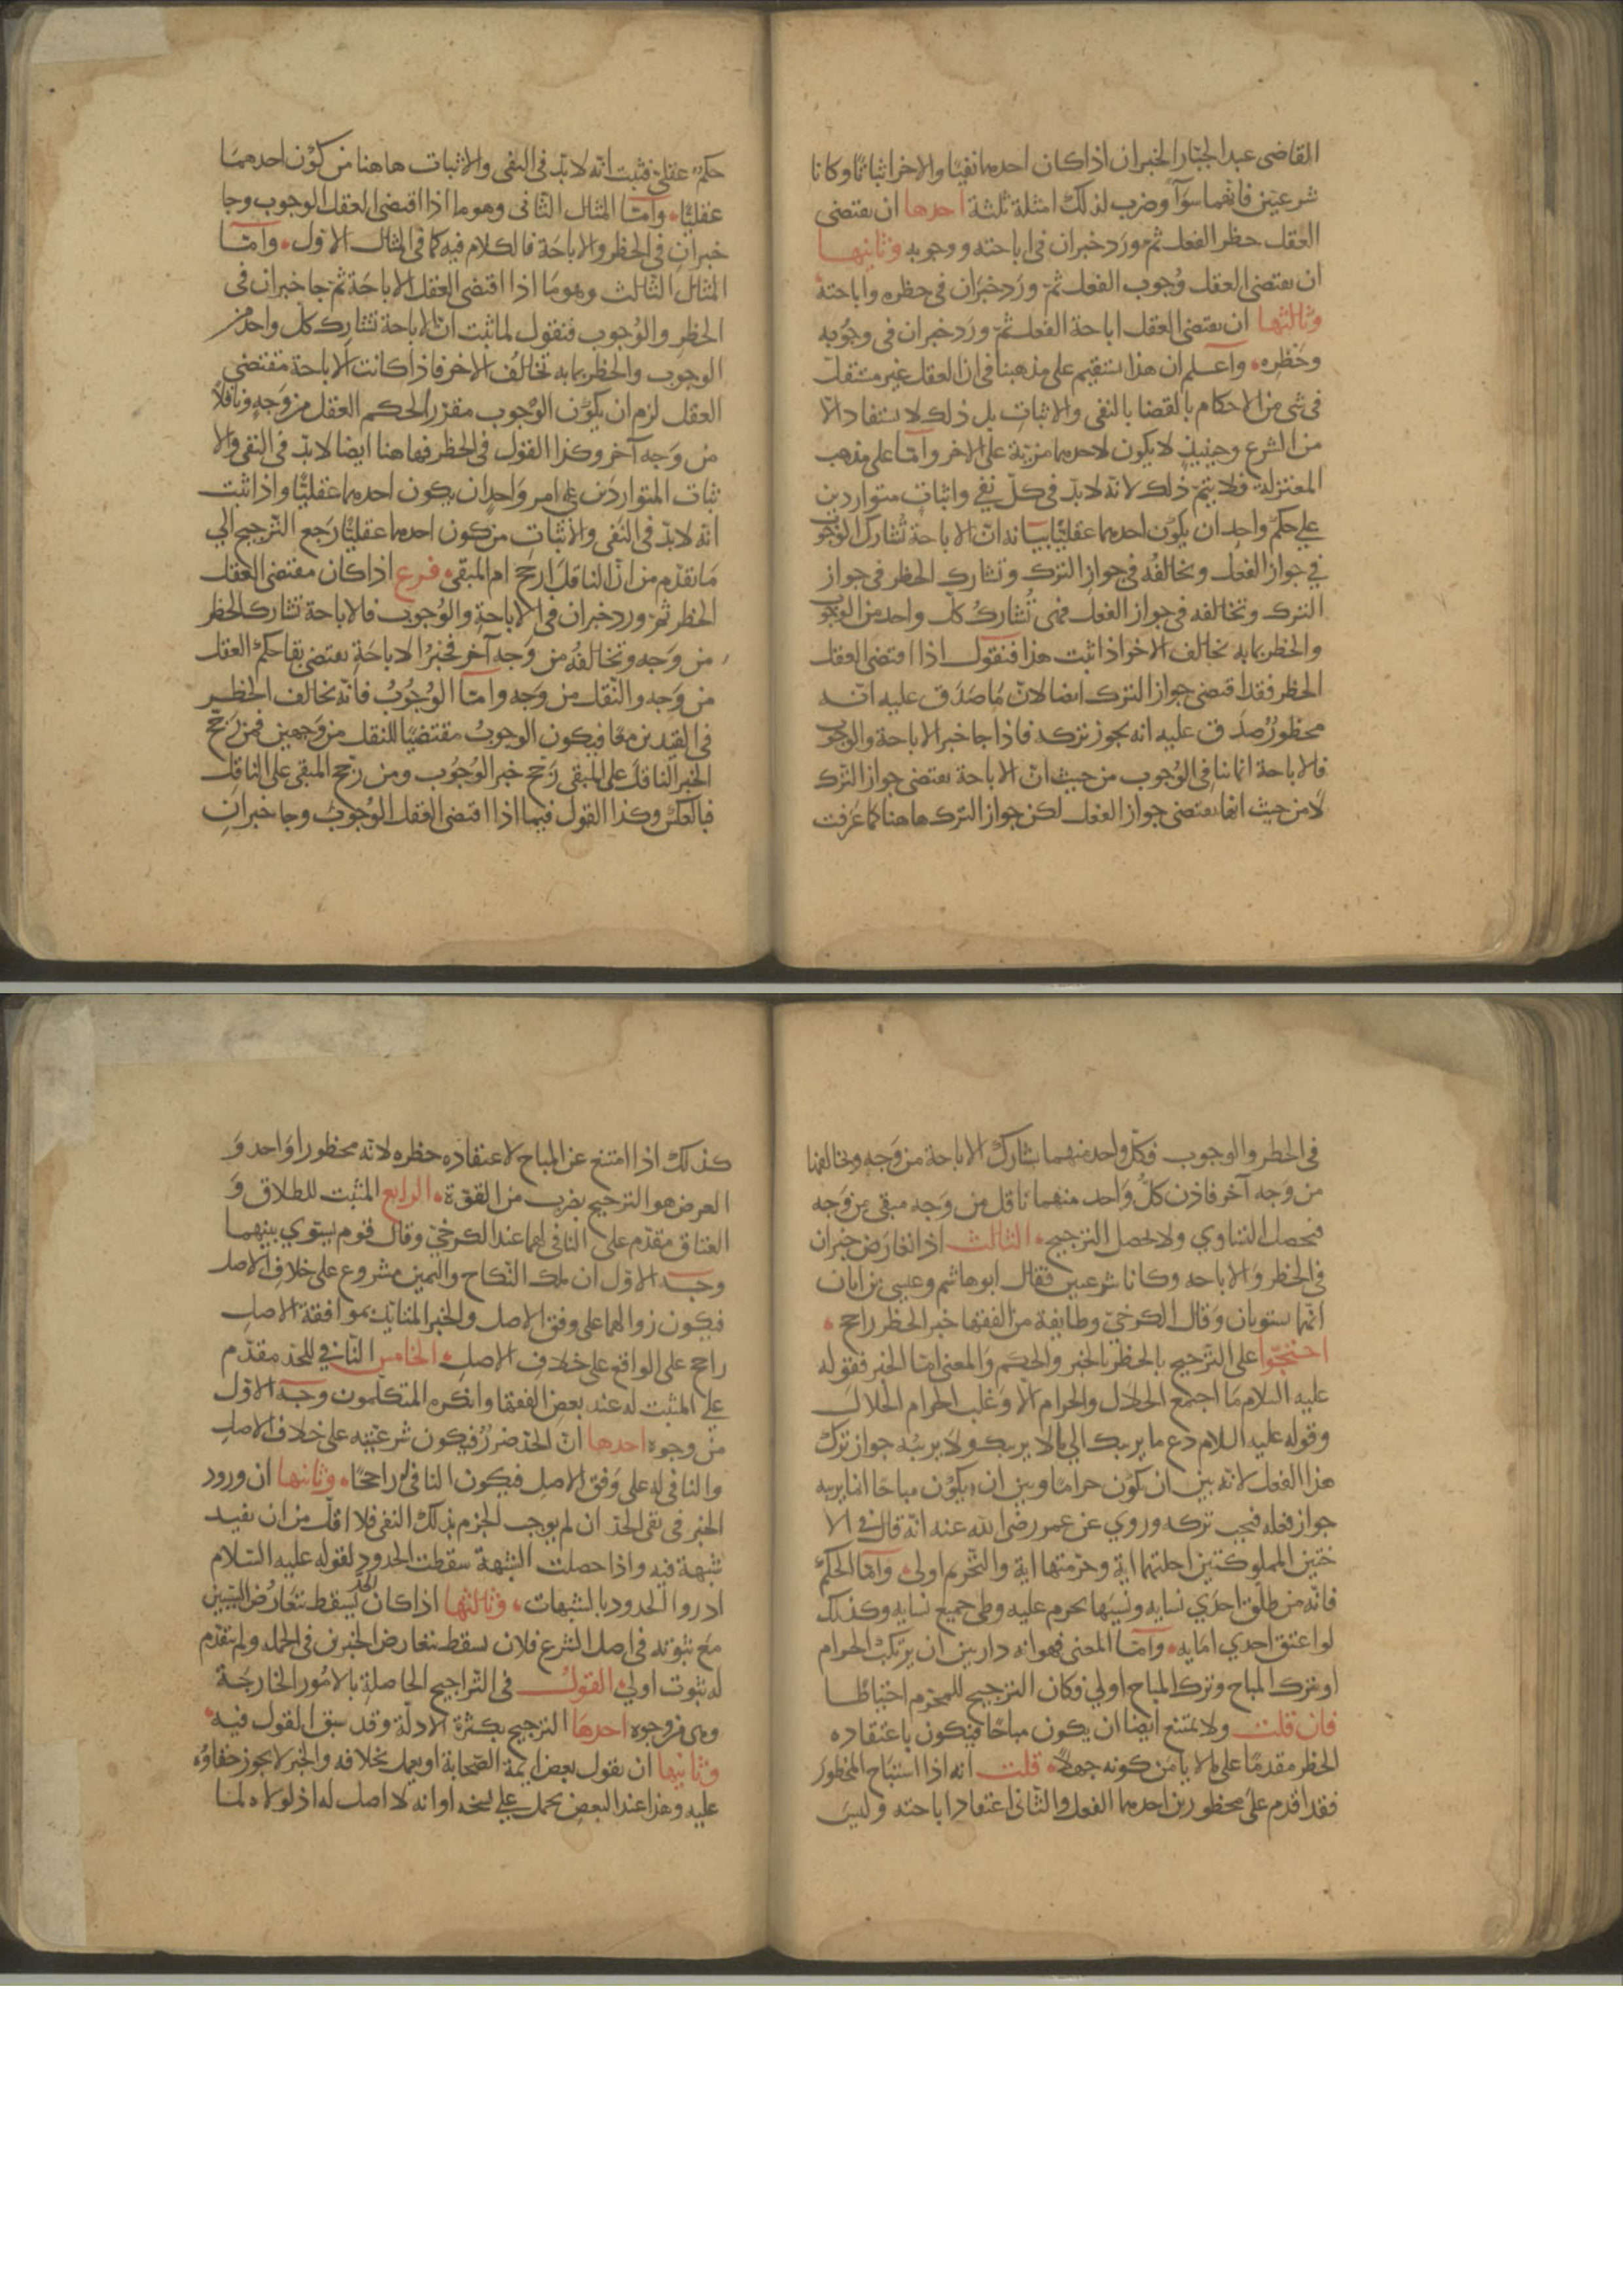 القاضى عبد الجبّار الخبران اذا كان احدهما نفيًا والاخر اثباتًا وكانا
شرعيّين فانهما سوآ وضرب لذلك امثلة ثلثة احدها ان يقتضى
العقل حظر الفعل ثم ورد خبران فى اباحته ووجوبه وثانيها
ان يقتضى العقل وُجوب الفعل ثمّ ورَد خبرَان فى حظره واباحته
وثالثها ان يقتضى العقل اباحة الفعل ثمّ ورَد خبران فى وجُوبه
وحَظرِه واعلم ان هذا يستقيم على مذهبنا فى ان العقل غير مستقل
فى شى من الاحكام بالقضا بالنفى والاثباتِ بل ذلك لا يستفاد الّا
من الشرع وحينيذٍ لا يكون لاحدهما مزيّة على الاخر وامّا على مذهب
المعتزلة فلا يتمّ ذلك لانه لابدّ فى كلّ نفي واثباتٍ متواردين
على حكم واحِد ان يكون احدهما عقليّا بيانه انّ الاباحة تُشارك الوجوب
في جواز الفعل وتخالفُه فى جواز الترك وتشارك الحظر فى جواز
الترك وتخالفه فى جواز الفعل فهى تُشاركُ كلّ واحد من الوجوب
والحظر بما به تخالف الاخر اذا ثبت هذا فنقول اذا اقتضى العقل
الحظر فقد اقتضى جواز الترك ايضا لانّ مَا صَدَق عليه انّه
محظورُ صدَق عليه انه يجوز تركه فاذا جا خبر الاباحة والوجوب
فالاباحة انما تنافى الوُجوب من حيث انّ الاباحة يقتضى جواز الترك
لا من حيث انها يقتضى جواز الفعل لكن جواز الترك هاهنا كما عَرفت
حكمٌ عقلىّ فثبت انّه لابدّ فى النفى والاثبات هاهنا من كوْن احدهمَا
عقليّا وامّا المثال الثّانى وهو ما اذا اقتضى العقل الوجوب وجا
خبرانِ فى الحظر والاباحَة فالكلام فيه كما فى المثال الاوّل وامّا
المثال الثّالث وهو مَا اذا اقتضى العقل الاباحَة ثمّ جا خبران فى
الحَظرِ والوُجوب فنقول لما ثبت انّ الاباحة تشارِك كلّ واحد من
الوجوب والحظر بما به تخالفُ الاخر فاذا كانت الاباحة مقتضى
العقل لزم ان يكون الوْجوب مقرّر الحكم العقل من وَجهٍ وناقلاً
من وَجه آخر وكذا القول فى الحظر فهاهنا ايضا لابدّ فى النفى والا
ثبات المتواردَين على امر وَاحدٍ ان يكون احدهما عقليًّا واذا ثبت
انه لابدّ فى النَفى والاثباتِ من كون احدهما عقليًّا رَجع الترجيح الي
مَا تقدّم من انّ الناقلَ ارجحُ ام المبقى فرع اذا كان مقتضى العقل
الحظر ثمّ ورد خبران فى الاباحةِ والوُجوب فالاباحة تشارك الحظر
من وَجه وتخالفهُ من وَجه آخر فخبرُ الاباحَةِ يقتضى بقا حكمِ العقل
من وَجه والنّقل من وَجه وامّا الوُجُوبُ فانّه تخالف الحظر
فى القيدين معًا فيكون الوجوبُ مقتضيًا للنقل من وَجهين فمن رَجّح
الخبر الناقلَ على المبقى رَجّح خبر الوُجُوب ومن رجّح المبقى على الناقل
فبالعكس وكذا القول فيما اذا اقتضى العقل الوُجوبَ وجا خبرانِ
فى الحظر والوجوب فكلّ واحد منهما يشارك الاباحة من وَجه وتخالفها
من وَجه آخر فاذن كلُّ وَاحد منهما ناقل من وَجه مبقى من وَجه
فيحصل التساوي ولا يحصل الترجيح الثالث اذا تعارَض خبران
فى الحظر وَالاباحه وكانا شرعيين فقال ابو هاشم وعيسى بن ابان
انّهما يستويان وَقال الكرخىّ وطايفة من الفقها خبر الحظر راجح
احتجّوا على التّرجيح بالحظر بالخبر والحكم وَالمعنى امّا الخبر فقوله
عليه السلام مَا اجتمع الحلال والحرام الّا وَغلب الحرام الحلال
وقوله عليه السلام دع ما يريبك الي مالا يريبك ولا يريبه جواز ترك
هذا الفعل لانّه بين ان يكون حرامًا وبين ان يكون مباحًا انما يريبه
جواز فعله فيجب تركه وروي عن عمر رضى الله عنه انّه قال فى الا
ختين المملوكتين احلتهما اية وحرّمتهما اية والتّحريم اولى وامّا الحكمُ
فانّه من طلّق احدَي نسايه ونَسِيَها يحرم عليه وطى جميع نسايه وكذلك
لو اعتق احدي امَايه وامّا المعنى فهو انه داربين ان يرتكبَ الحرام
او يترك المباح وترك المباح اولي فكان الترجيح للمحرّم احتياطًا
فان قلت ولا يمتنع ايضا ان يكون مباحًا فيكون باعتقاده
الحظر مقدمًا على مالا يامَن كونه جهلاً قلت انه اذا استبَاح المحظورَ
فقد اقدم على محظورين احدهما الفعل والثانى اعتقاد اباحته وليسَ
كذلك اذا امتنع عن المباح لاعتقاده حظره لانّه محظور واحد وَ
الغرض هو الترجيح بضرب من القوّة الرابع المثبت للطلاق وَ
العتاق مقدّم على النافى لهما عند الكرخىّ وقال قوم يستوي بينهما
وجه الاوّل ان ملك النّكاح واليمين مشروع على خلاف الاصل
فيكون زوالهما على وفق الاصل والخبر المتايّد بموافقة الاصلِ
راجح على الواقع على خلافِ الاصل الخامس النّافي للحدّ مقدّم
على المثبت له عند بعضِ الفقها وانكره المتكلّمون وجه الاوّل
من وجوه احدها انّ الحدّ ضررُ فيكون شرعيّته على خلاف الاصلِ
والنافى له على وَفق الاصلِ فيكون النافى له راجحًا وثانيها ان ورود
الخبر فى نفى الحدّ ان لم يوجب الجزم بذلك النفى فلا اقلّ من ان يفيد
شبهة فيه واذا حصلت الشبهة سقطت الحدود لقوله عليه السّلام
ادروا الحدود بالشبهات وثالثها اذا كان الحدّ يسقط بتعَارُض البيّنتين
مَع ثبوته فى اصل الشرع فلان يسقط بتعارض الخبرين فى الجمله ولم يتقدّم
له ثبوت اولي القولُ فى التّراجيح الحاصلةِ بالامُور الخارجَة
وهى من وجوه احدهَا الترجيح بكثرة الادلّة وقد سبق القول فيه
وثانيها ان يقول بعض ايمة الصّحابة او يعمل بخلافه والخبر لا يجوز خفاوُه
عليه وهذا عند البعضِ يحمل على نسخه او انه لا اصل له اذ لولاه لما